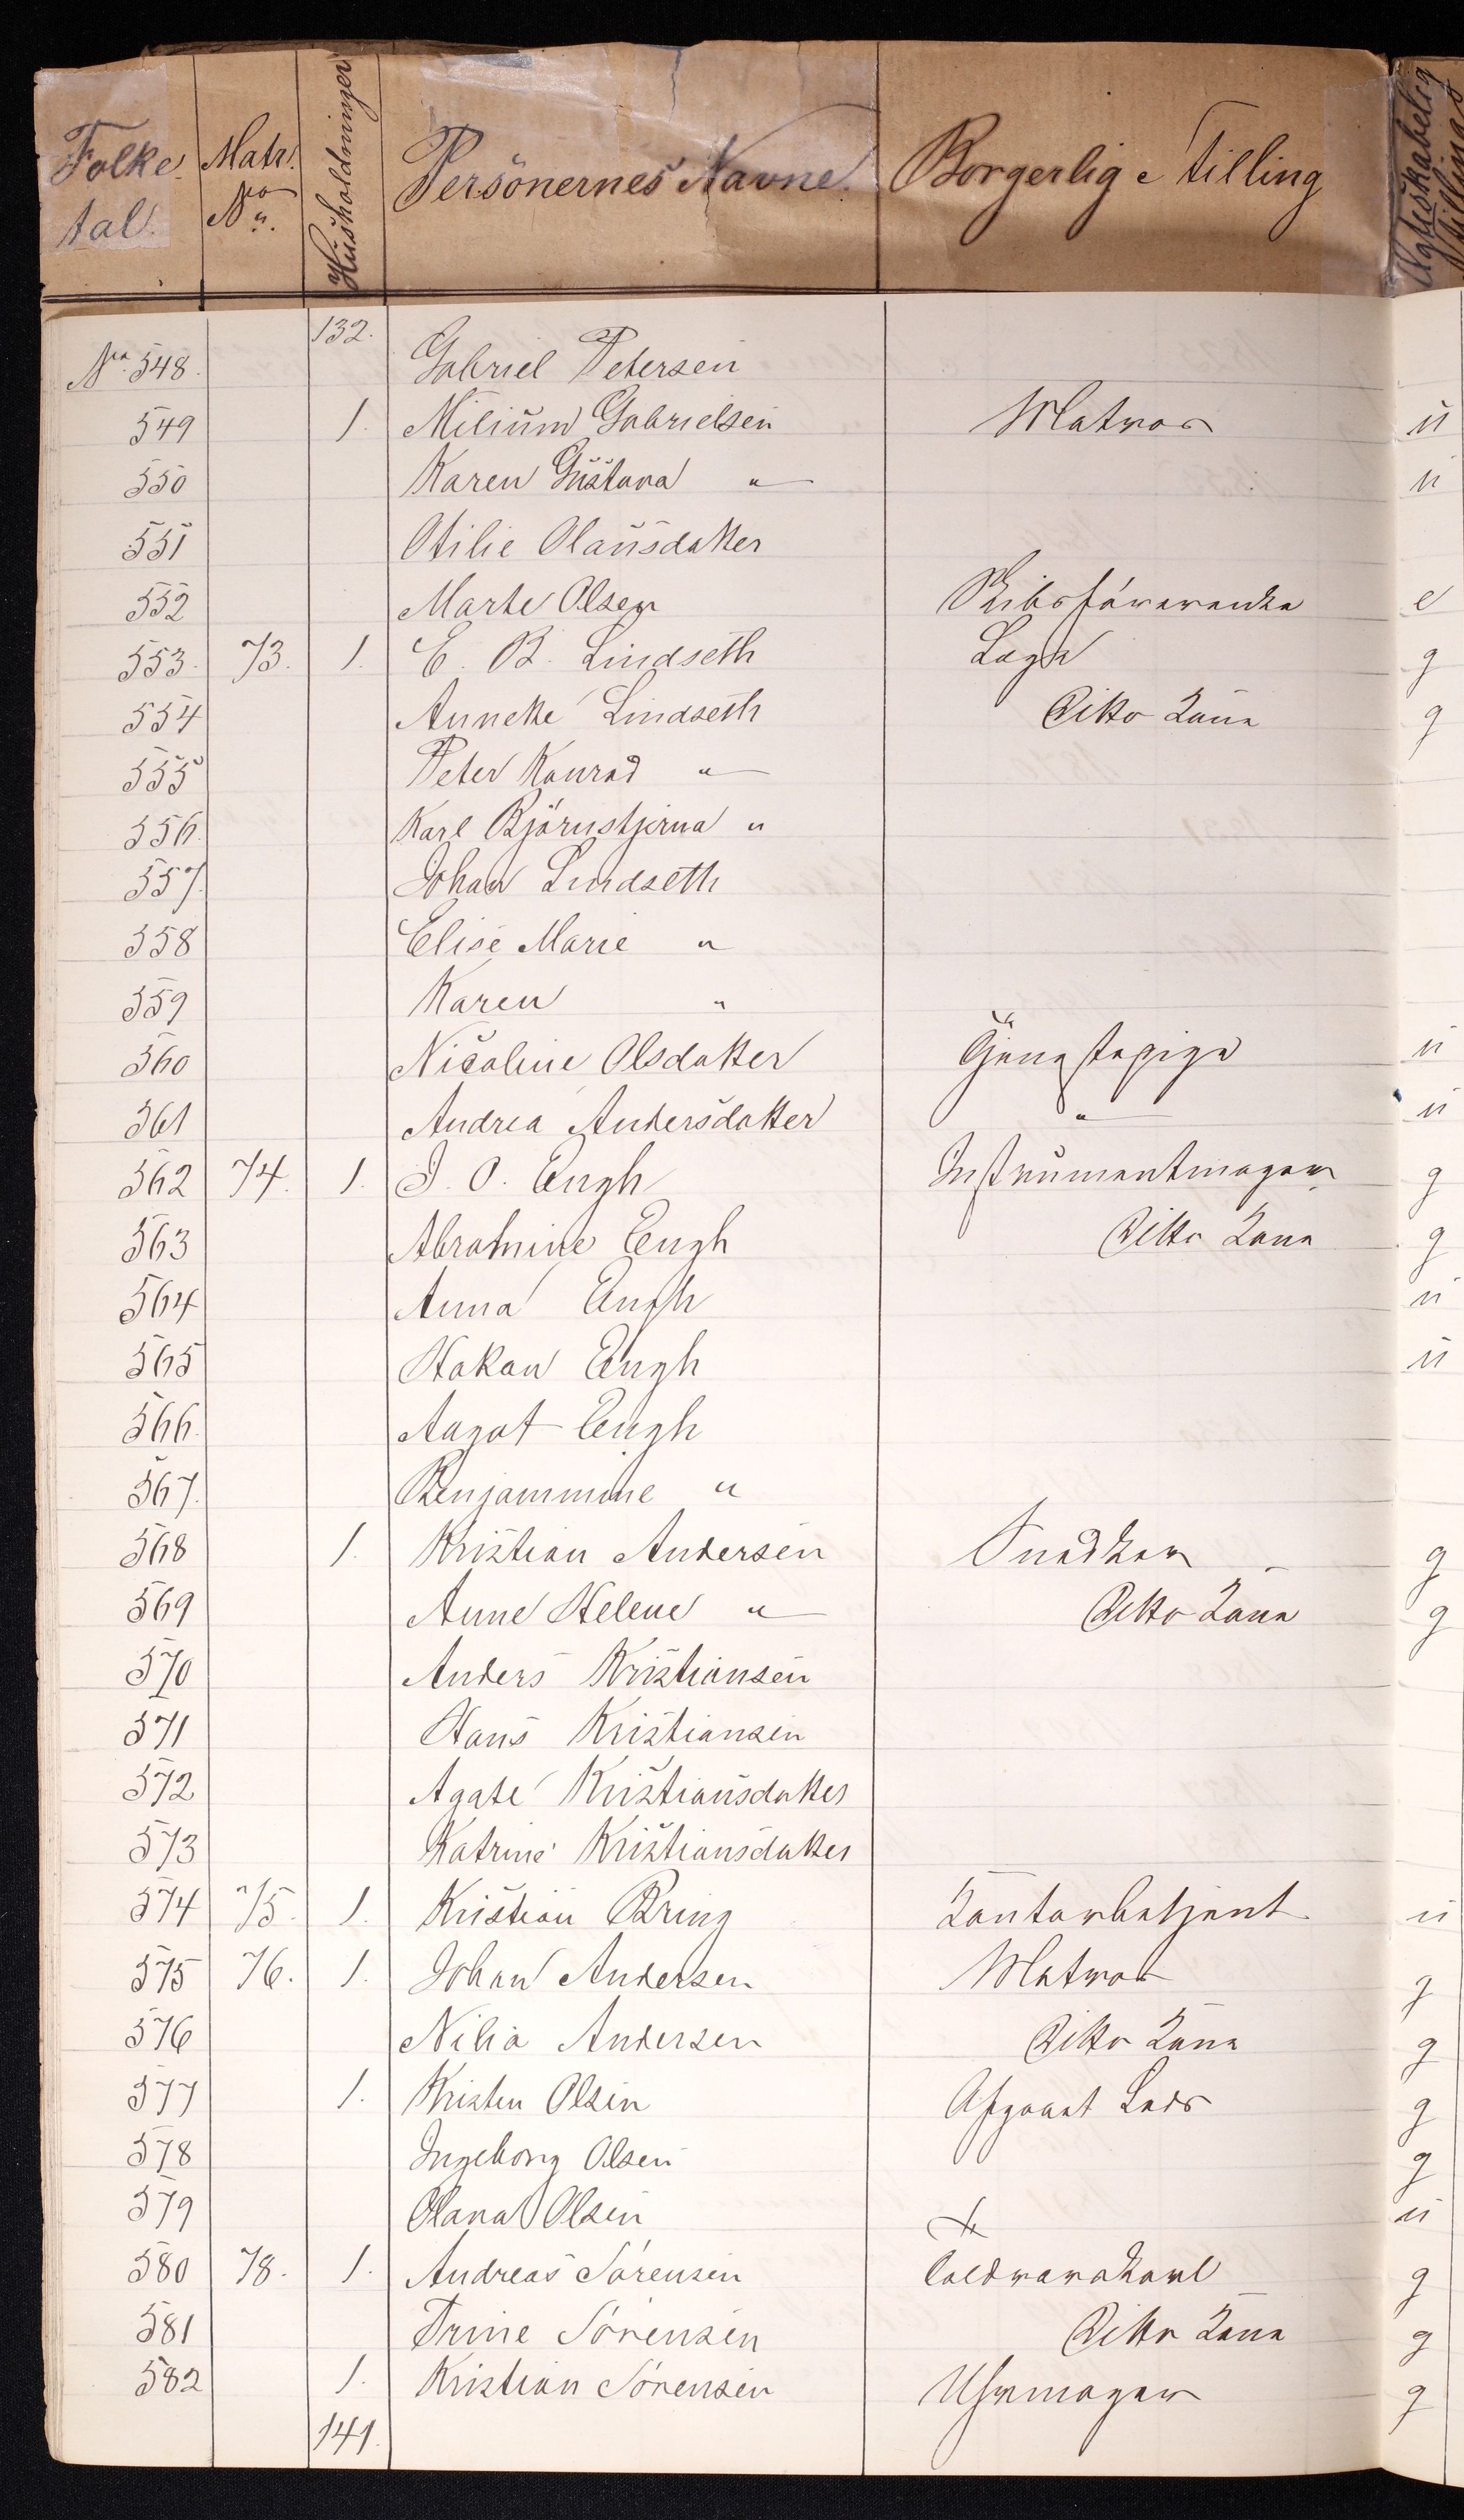 Folketal. Matr. No. Husholdninger Personernes Navne. Borgerlig Stilling Ægteskabelig Stilling
132.
No. 548. Gabriel Petersen
549 1. Milium Gabrielsen Matros u
550 Karen Gustava " u
551 Otilie Olausdatter
552 Marte Olsen Skibsførerenke e
553. 73. 1. E. B. Lindseth Læge g
554 Annette Lindseth Ditto Kone g
555 Peter Konrad "
556. Karl Björnstjerna "
557. Johan Lindseth
558 Elise Marie "
559 Karen "
560 Nicoline Olsdatter Tjenestepige u
561 Andrea Andersdatter " u
562 74. 1. I. O. Engh Instrumentmager g
563 Abrahmine Engh Ditto Kone g
564 Anna Engh u
565 Hakon Engh u
566. Aagot Engh
567. Benjammine "
568 1. Kristian Andersen Snedker g
569 Anne Helene " Ditto Kone g
570 Anders Kristiansen
571 Hans Kristiansen
572 Agate Kristiansdatter
573 Katrine Kristiansdatter
574 75. 1. Kristian Bring Kontorbetjent u
575 76. 1. Johan Andersen Matros g
576 Nilia Andersen Ditto Kone g
577 1. Kristen Olsen Afgaaet Lods g
578 Ingeborg Olsen g
579 Olava Olsen u
580 78. 1. Andreas Sørensen Toldrorskarl g
581 Trine Sørensen Ditto Kone g
582 1. Kristian Sörensen Uhrmager g
141.